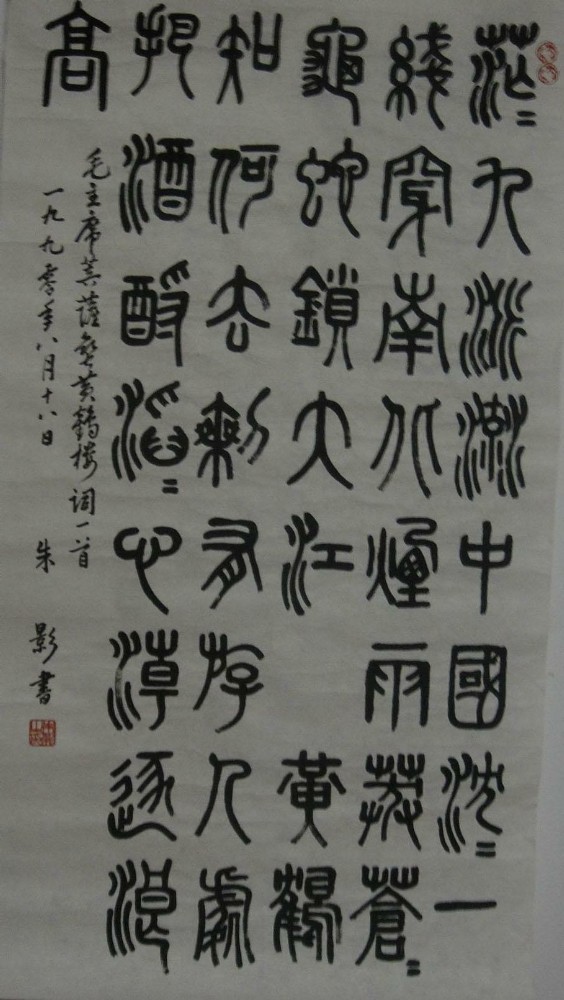 茫〻九派流中國沈〻一
綫穿南北煙雨莽蒼〻
龜蛇鎖大江 黃鶴
知何去剩有游人處
把酒酹滔〻心潮逐浪
高
毛主席菩薩蛮黄鶴楼词一首
一九九零年八月十八日 朱影書